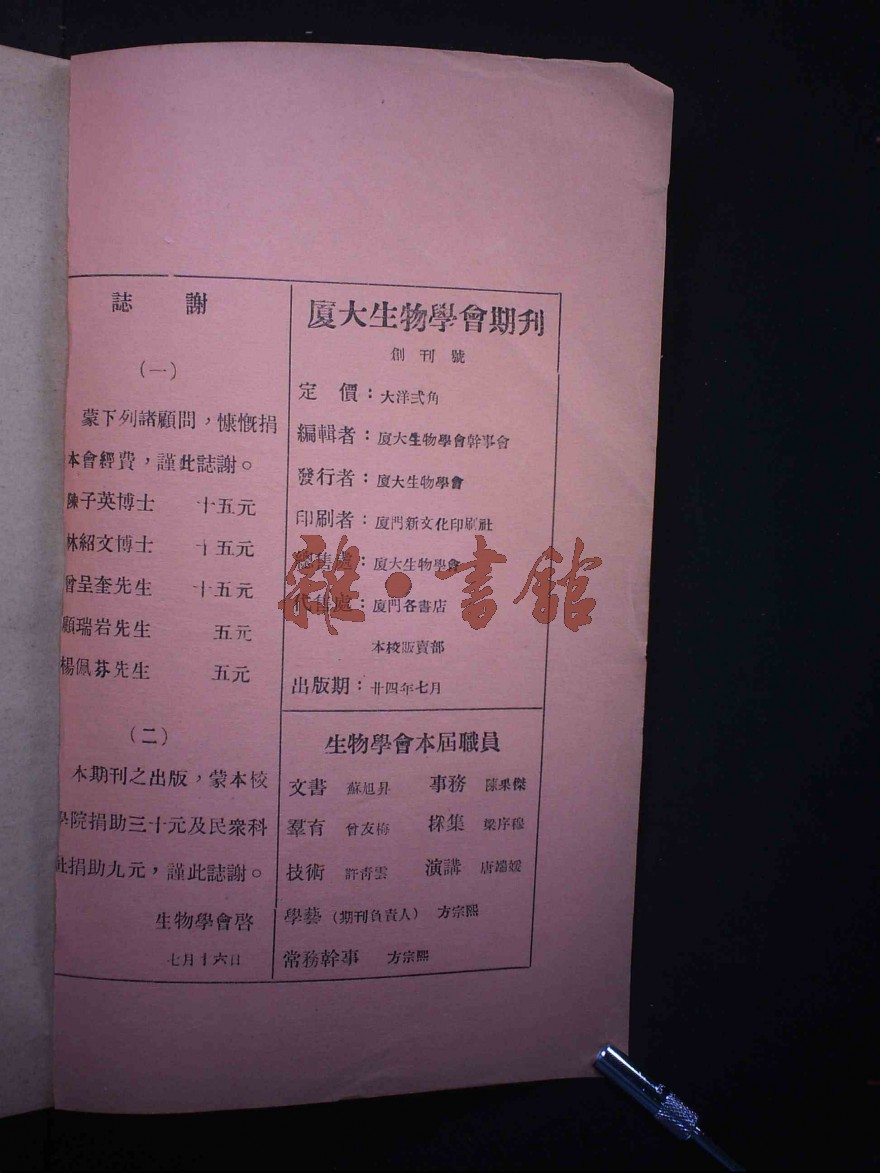 誌謝
(一)
蒙下列諸顧問，慷慨捐
本會經費，謹此誌謝。
陳子英博士 十五元
林紹文博士 十五元
曾呈奎先生 十五元
顧瑞岩先生 五元
楊佩芬先生 五元
(二)
本期刊之出版，蒙本校
學院捐助三十元及民衆科
社捐助九元，謹此誌謝。
生物學會啓
七月十六日
廈大生物學會期刊
創刊號
定價：大洋弍角
編輯者：廈大生物學會幹事會
發行者：廈大生物學會
印刷者：廈門新文化印刷社
總售處：廈大生物學會
代售處：廈門各書店
本校販賣部
出版期：廿四年七月
生物學會本屆職員
文書 蘇旭昇 事務 陳果傑
羣育 曾友梅 採集 梁序穆
技術 許靑雲 演講 唐端媛
學藝（期刊負責人） 方宗熙
常務幹事 方宗熙
雜·書館